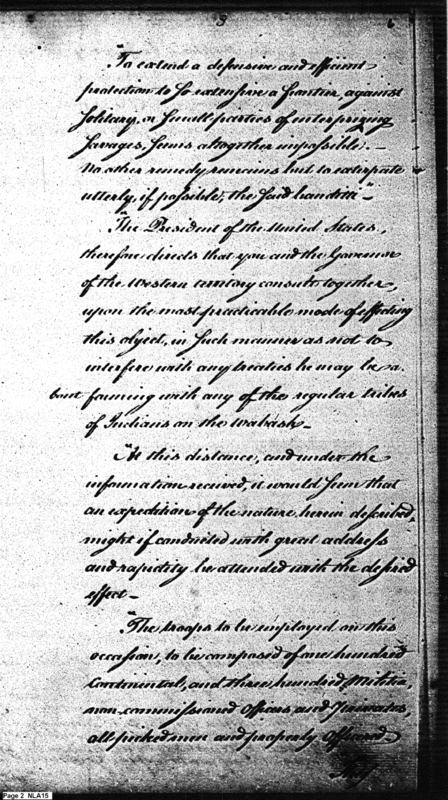 3 6
"To extend a defensive and efficient
protection to so extensive a frontier, against
solitary, or small parties of enterprizing
savages, seems altogether impossible. –
No other remedy remains but to exterpate
utterly, if possible, the said banditti" –
"The President of the United States,
therefore directs that you and the Governor
of the Western territory consult together,
upon the most practicable mode of effecting
this object, in such manner as not to
interfere with any treaties he may be a
bout forming with any of the regular tribes
of Indians on the Wabash –
"At this distance, and under the
information received, it would seem that
an expedition of the nature herein described,
might if conducted with great address
and rapidity be attended with the desired
effect –
"The troops to be employed on this
occasion, to be composed of one hundred
Continental, and three hundred Militia,
non-commissioned officers and privates,
all picked men and properly officered.
Page 2 NLA15